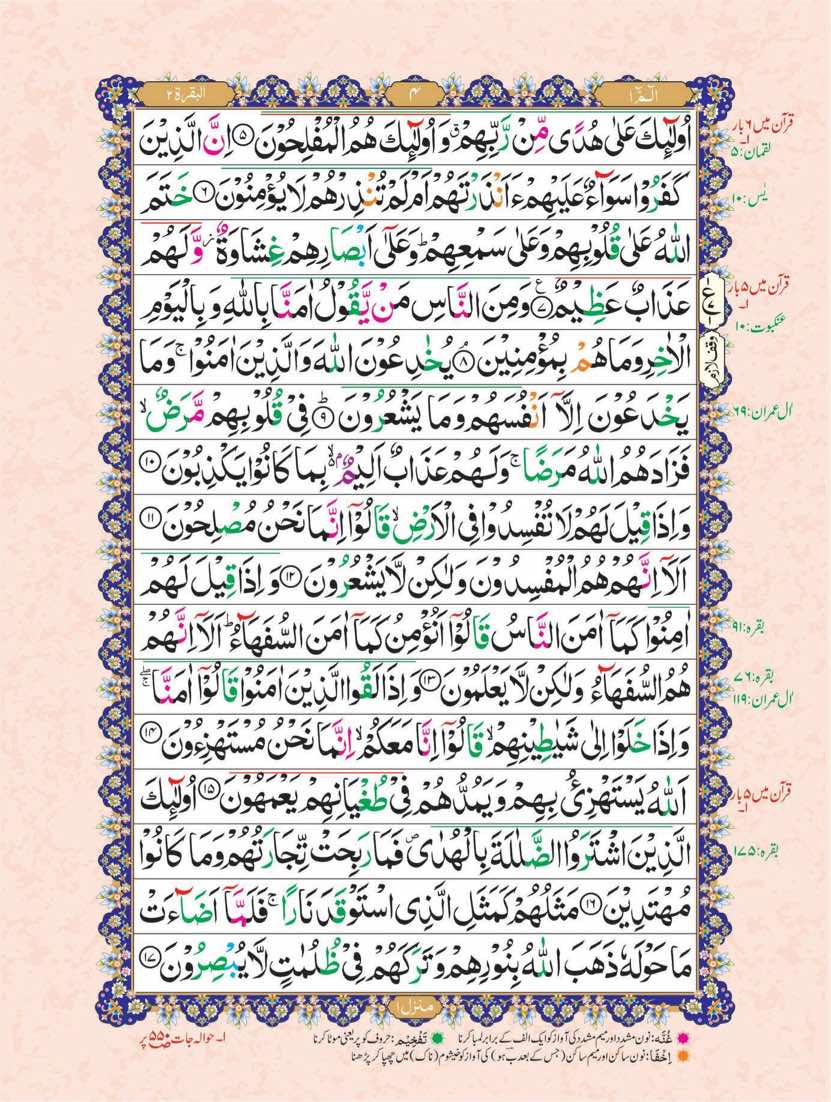 الٓمّٓ ١
٤
البقرة ٢
اُولٰٓئِكَ عَلٰى هُدًى مِّنْ رَّبِّهِمْ ۗ وَاُولٰٓئِكَ هُمُ الْمُفْلِحُوْنَ ۝٥ اِنَّ الَّذِيْنَ
كَفَرُوْا سَوَآءٌ عَلَيْهِمْ ءَاَنْذَرْتَهُمْ اَمْ لَمْ تُنْذِرْهُمْ لَا يُؤْمِنُوْنَ ۝٦ خَتَمَ
اللّٰهُ عَلٰى قُلُوْبِهِمْ وَعَلٰى سَمْعِهِمْ ؕ وَعَلٰٓى اَبْصَارِهِمْ غِشَاوَةٌ ز وَّلَهُمْ
عَذَابٌ عَظِيْمٌ ۝٧ ع وَمِنَ النَّاسِ مَنْ يَّقُوْلُ اٰمَنَّا بِاللّٰهِ وَبِالْيَوْمِ
الْاٰخِرِ وَمَا هُمْ بِمُؤْمِنِيْنَ ۝٨ يُخٰدِعُوْنَ اللّٰهَ وَالَّذِيْنَ اٰمَنُوْا ۚ وَمَا
يَخْدَعُوْنَ اِلَّاۤ اَنْفُسَهُمْ وَمَا يَشْعُرُوْنَ ۝٩ؕ فِيْ قُلُوْبِهِمْ مَّرَضٌ ۙ
فَزَادَهُمُ اللّٰهُ مَرَضًا ۚ وَلَهُمْ عَذَابٌ اَلِيْمٌۢ ۙ بِمَا كَانُوْا يَكْذِبُوْنَ ۝١٠
وَاِذَا قِيْلَ لَهُمْ لَا تُفْسِدُوْا فِى الْاَرْضِ ۙ قَالُوْۤا اِنَّمَا نَحْنُ مُصْلِحُوْنَ ۝١١
اَلَاۤ اِنَّهُمْ هُمُ الْمُفْسِدُوْنَ وَلٰكِنْ لَّا يَشْعُرُوْنَ ۝١٢ وَاِذَا قِيْلَ لَهُمْ
اٰمِنُوْا كَمَاۤ اٰمَنَ النَّاسُ قَالُوْۤا اَنُؤْمِنُ كَمَاۤ اٰمَنَ السُّفَهَآءُ ؕ اَلَاۤ اِنَّهُمْ
هُمُ السُّفَهَآءُ وَلٰكِنْ لَّا يَعْلَمُوْنَ ۝١٣ وَاِذَا لَقُوا الَّذِيْنَ اٰمَنُوْا قَالُوْۤا اٰمَنَّا ۚۖ
وَاِذَا خَلَوْا اِلٰى شَيٰطِيْنِهِمْ ۙ قَالُوْۤا اِنَّا مَعَكُمْ ۙ اِنَّمَا نَحْنُ مُسْتَهْزِءُوْنَ ۝١٤
اَللّٰهُ يَسْتَهْزِئُ بِهِمْ وَيَمُدُّهُمْ فِيْ طُغْيَانِهِمْ يَعْمَهُوْنَ ۝١٥ اُولٰٓئِكَ
الَّذِيْنَ اشْتَرَوُا الضَّلٰلَةَ بِالْهُدٰى ۪ فَمَا رَبِحَتْ تِّجَارَتُهُمْ وَمَا كَانُوْا
مُهْتَدِيْنَ ۝١٦ مَثَلُهُمْ كَمَثَلِ الَّذِى اسْتَوْقَدَ نَارًا ۚ فَلَمَّاۤ اَضَآءَتْ
مَا حَوْلَهٗ ذَهَبَ اللّٰهُ بِنُوْرِهِمْ وَتَرَكَهُمْ فِيْ ظُلُمٰتٍ لَّا يُبْصِرُوْنَ ۝١٧
منزل ١
قرآن میں ۶ بار
۱ـ
لقمان:۵
یٰس:۱۰
قرآن میں ۵ بار
۱ـ
عنکبوت:۱۰
ال عمران:۶۹
بقرہ:۹۱
بقرہ:۷۶
ال عمران:۱۱۹
قرآن میں ۵ بار
۱ـ
بقرہ:۱۷۵
ع
٧
١
وقف لازم
غُنَّه: نون مشدد اور میم مشدد کی آواز کو ایک الف کے برابر لمبا کرنا تَفْخِيْم: حروف کو پُر یعنی موٹا کرنا
اِخْفَا: نون ساکن اور میم ساکن (جس کے بعد ب ہو) کی آواز کو خیشوم (ناک) میں چھپا کر پڑھنا
۱ـ حوالہ جات ص ۵۵۰ پر